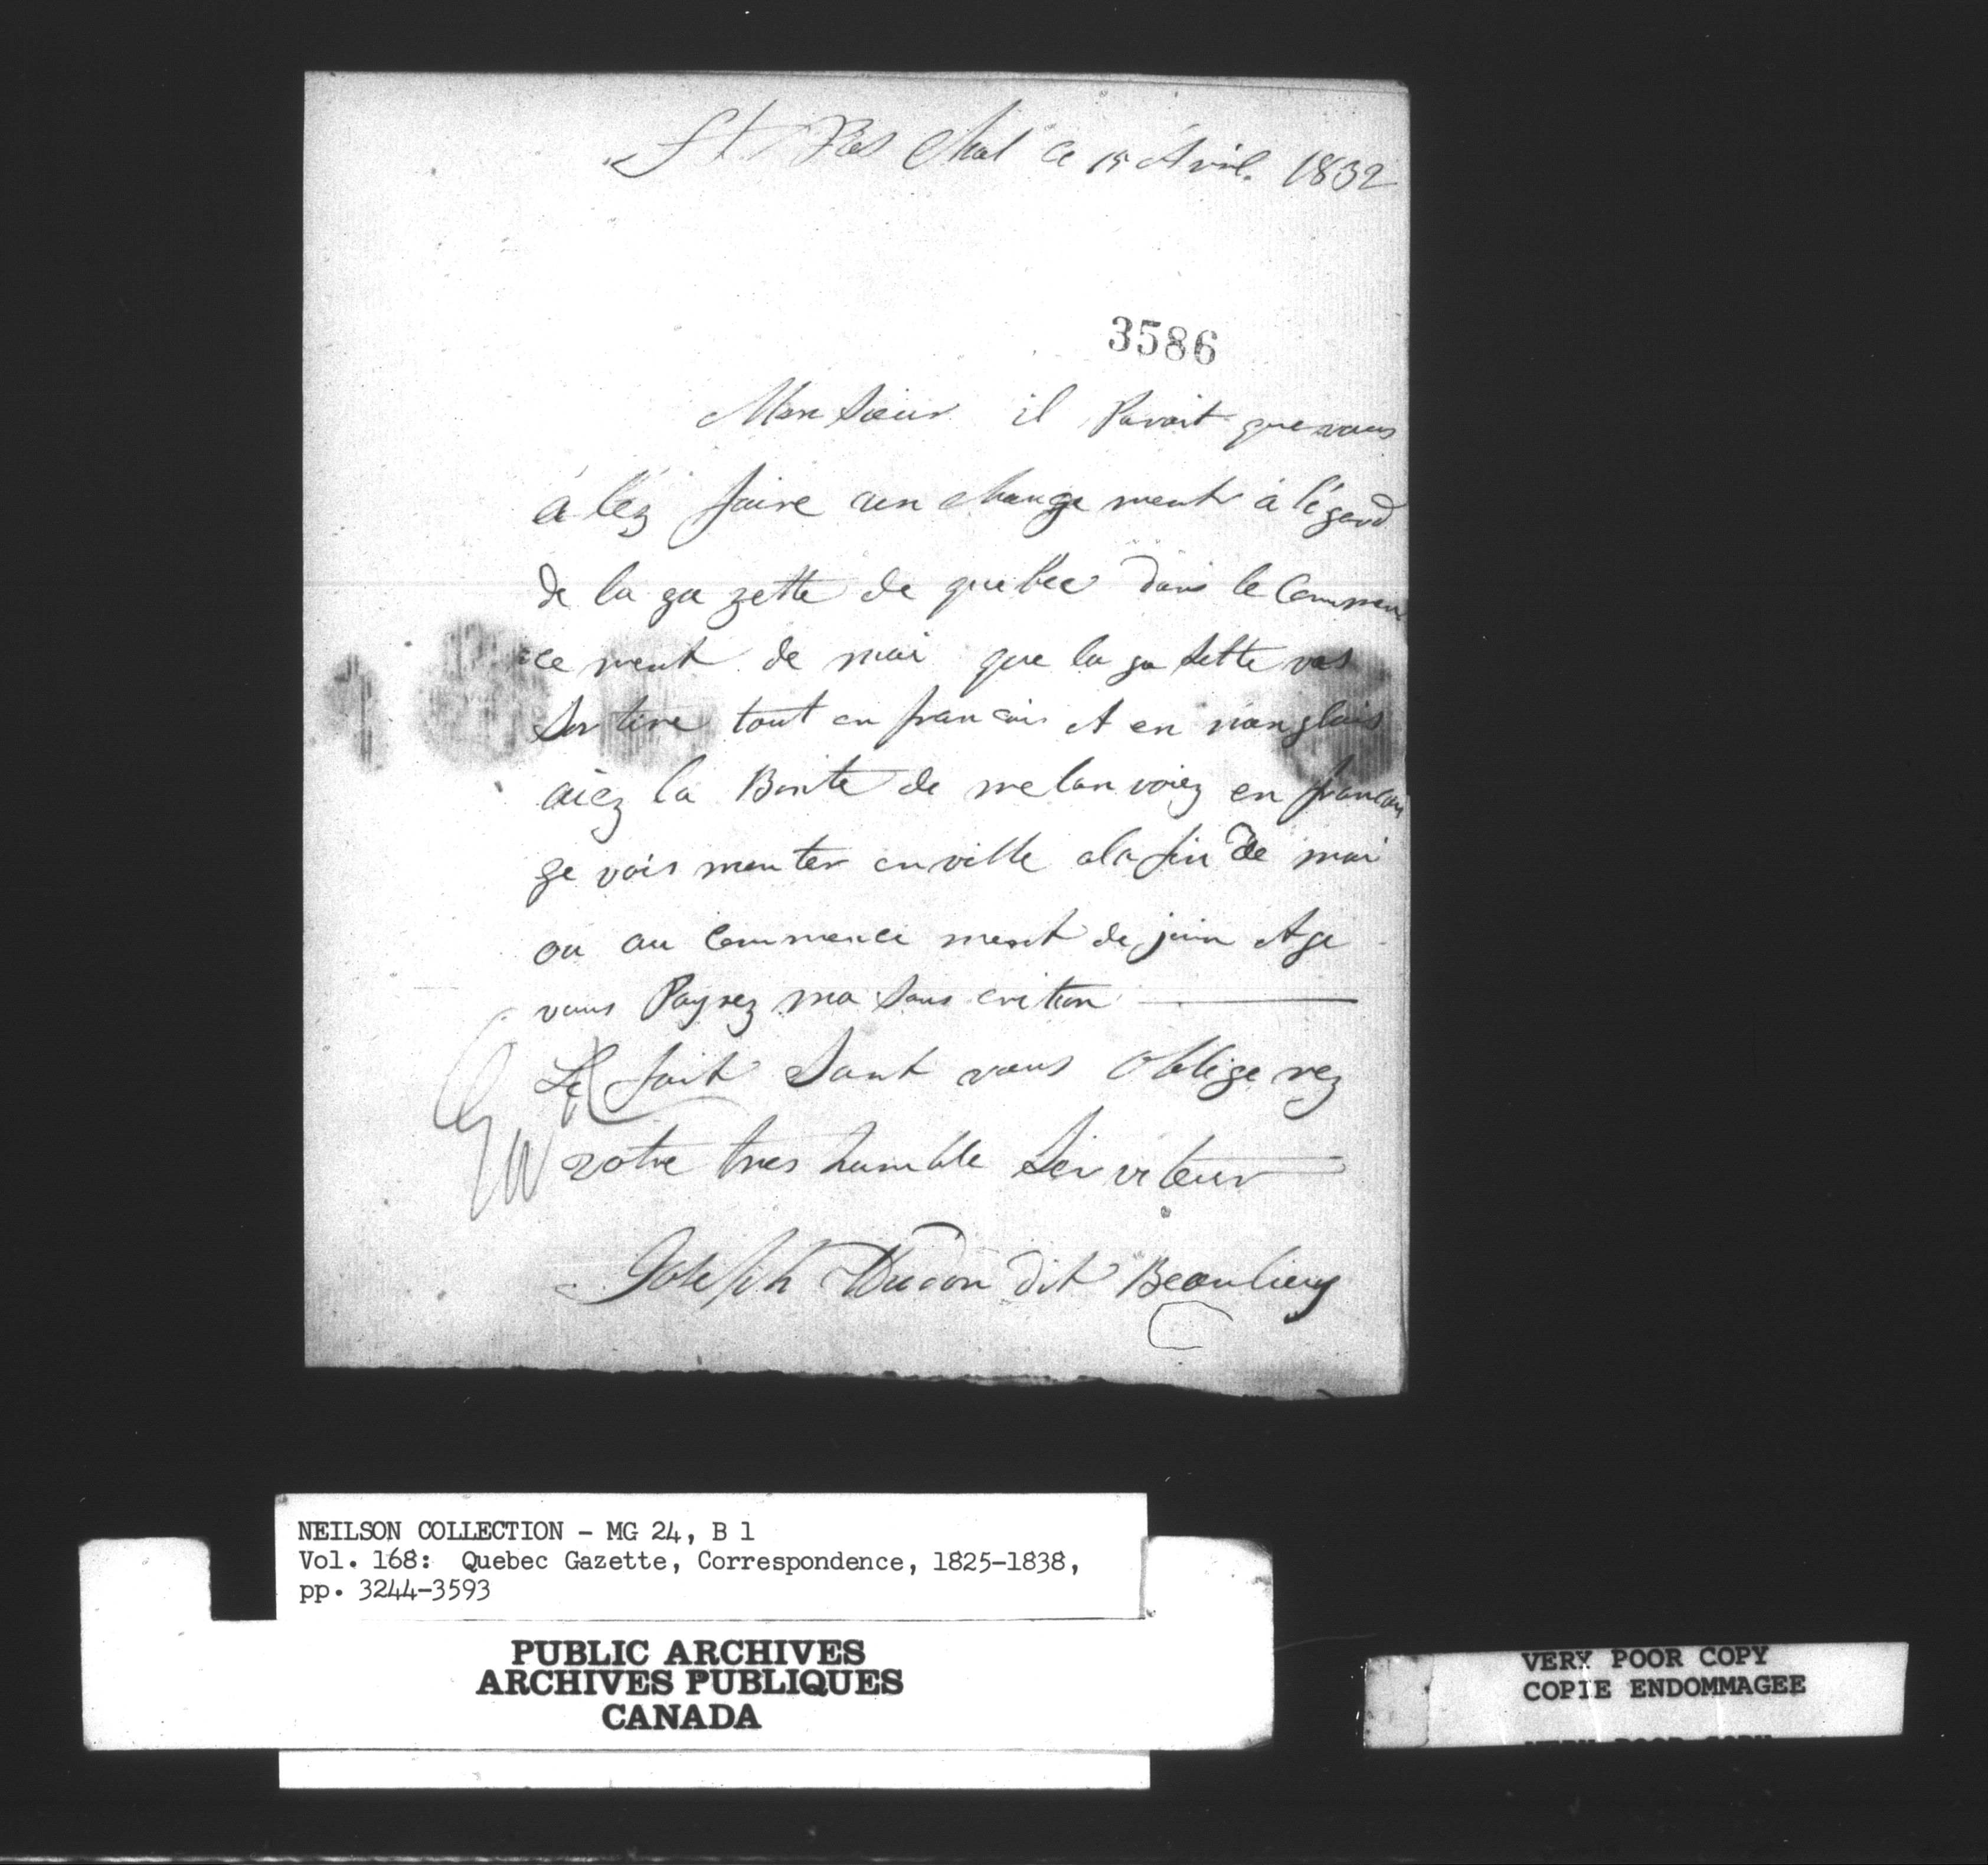 St Pas Chal ce 15 Avril. 1832
3586
Mon sieur il Parait que vous
a léz faire un change ment à légard
de la ga zette de quebec dans le Commen
ce ment de mai que la ga sette vas
sor tire tout en francais et en nanglais
aiez la Bonté de me lan voiez en francais
ge vais monter en ville a la fin de mai
ou au commence ment de juin et ge
vous Payrez ma sous crition
Le fait sant vous oblige rez
votre tres humble Ser viteur
Joseph Hudon dit Beaulieu
NEILSON COLLECTION - MG 24, B 1
Vol. 168: Quebec Gazette, Correspondence, 1825-1838,
pp. 3244-3593
PUBLIC ARCHIVES
ARCHIVES PUBLIQUES
CANADA
VERY POOR COPY
COPIE ENDOMMAGEE
VERY POOR COPY